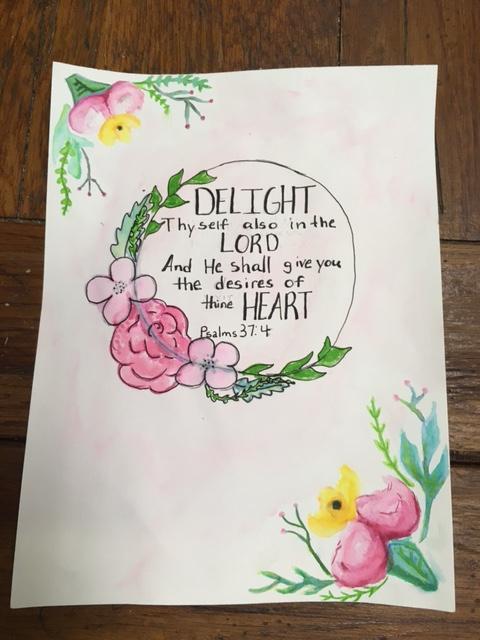 DELIGHT
Thyself also in the
LORD
And He shall give you
the desires of
thine HEART
Psalms 37:4